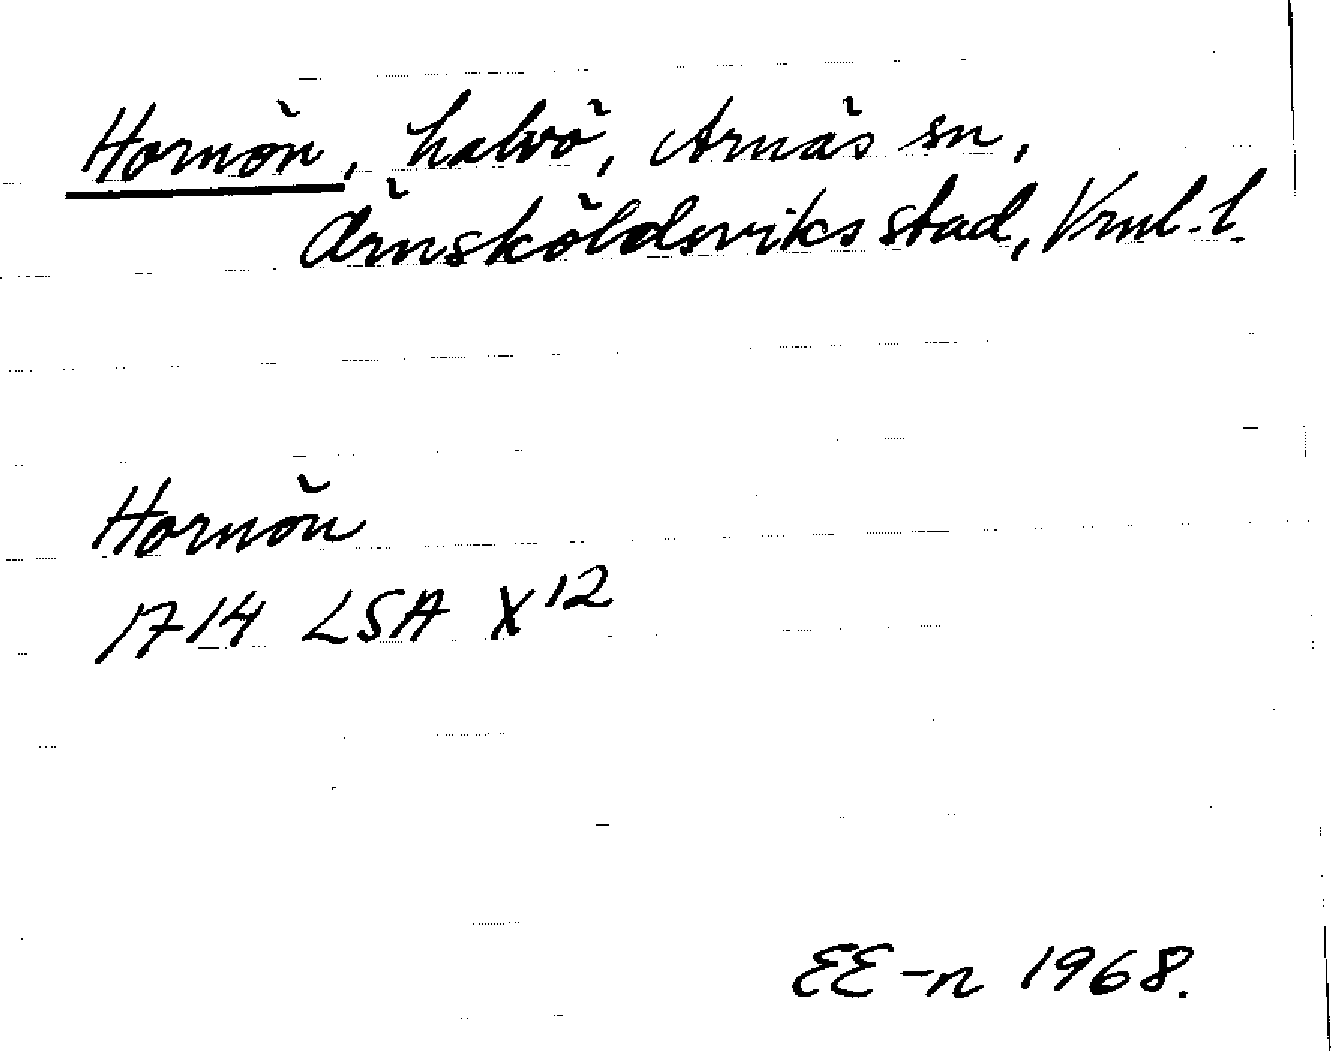 Hornön, halvö, Arnäs sn,
Örnsköldsviks stad, Vrnl. l.
Hornön
1714 LSA X 12
EE-n 1968.